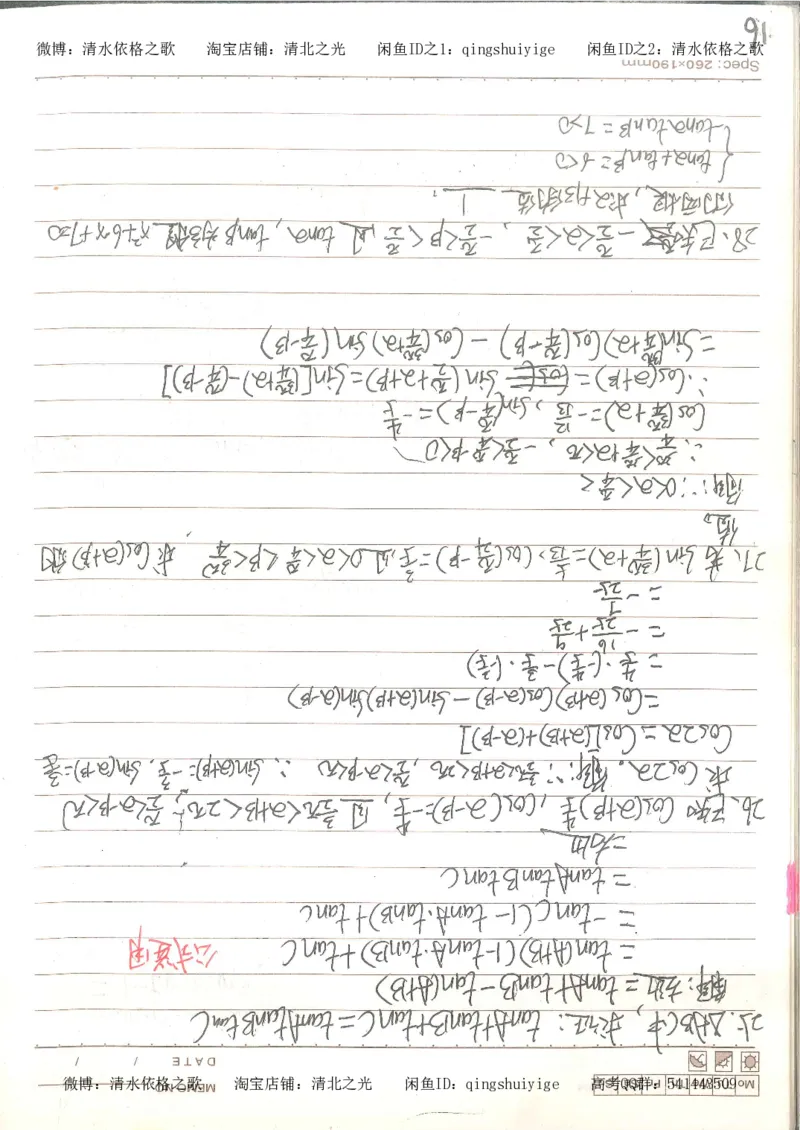 微博：清水依格之歌 淘宝店铺：清北之光 闲鱼ID之1：qingshuiyige 闲鱼ID之2：清水依格之歌
MEMO NO.
DATE / /
25. △ABC中，求证：tanA+tanB+tanC=tanAtanBtanC
解：左边=tanA+tanB-tan(A+B)
=tan(A+B)(1-tanA·tanB)+tanC
公式逆用
=-tanC(1-tanA·tanB)+tanC
=tanAtanBtanC
=右边
26、已知cos(α+β)=4/5，cos(α-β)=-4/5，且 3/2π<α+β<2π，π/2<α-β<π
求cos2α。解：∵3/2π<α+β<2π，π/2<α-β<π ∴sin(α+β)=-3/5，sin(α-β)=3/5
cos2α=cos[(α+β)+(α-β)]
=cos(α+β)cos(α-β)-sin(α+β)sin(α-β)
=4/5·(-4/5)-3/5·(-3/5)
=-16/25+9/25
=-7/25
27、若sin(3π/4+α)=5/13，cos(π/4-β)=3/5，且0<α<π/4<β<3π/4，求cos(α+β)的
值。
解：∵0<α<π/4<
∴3π/4<3π/4+α<π，-π/2<π/4-β<0
cos(3π/4+α)=-12/13，sin(π/4-β)=-4/5
∴cos(α+β)=sin(π/2+α+β)=sin[(3π/4+α)-(π/4-β)]
=sin(3π/4+α)cos(π/4-β)-cos(3π/4+α)sin(π/4-β)
28、已知-π/2<α<π/2，-π/2<β<π/2且tanα，tanβ为方程x²+6x+7=0
的两根，求α+β的值
{tanα+tanβ=-6<0
tanαtanβ=7>0
Spec: 260×190mm
91
微博：清水依格之歌 淘宝店铺：清北之光 闲鱼ID：qingshuiyige 高考QQ群：541448509